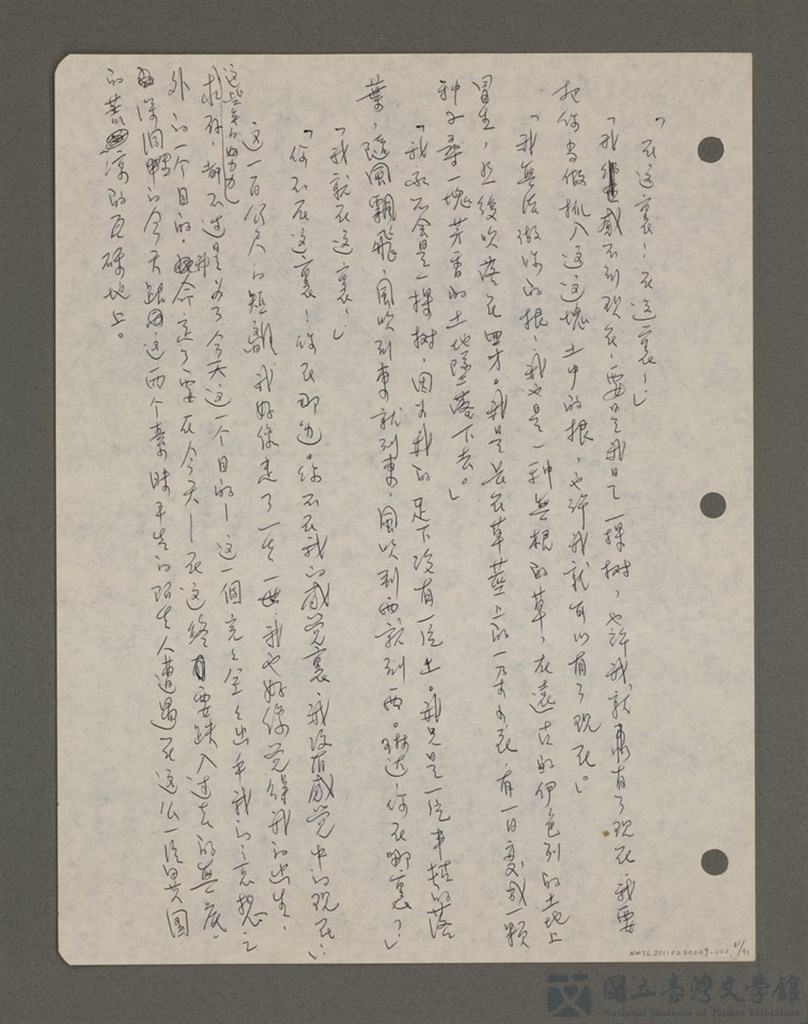 「在這裏！在這裏！」
「我感不到現在，要是我是一棵树，也許我就有了現在，我要
把你当做抓入這塊土中的根，也許我就可以有了現在。」
「我無法做你的根，我也是一种無根的草，在遠古的伊色列的土地上
冒生，然後吹落在四方。我是長在草莖上的一朵小花，有一日變成一顆
种子尋一塊芳香的土地墜落下去。」
「我永不会是一棵树，因为我的足下沒有一片土。我只是一片半枯的落
葉，隨風飄飛，風吹到東就到東，風吹到西就到西。琳达，你在哪裏？」
「我就在這裏！」
「你不在這裏！你在那边。你不在我的感觉裏，我沒有感觉中的現在！」
這一百公尺的短離，我好像走了一生一世，我也好像觉得我的出生，
這些年的努力，
求存，都不过是为了今天這一个目的—這一個完全出乎我的意想之
外的一个目的，命定了要在今天—在這終要跌入过去的無底
深洞的今天跟這两个素昧平生的陌生人遭遇在這么一片異国
的荒涼的瓦礫地上。
NMTL20110280009-002
61/71
國立臺灣文學館
National Museum of Taiwan Literature